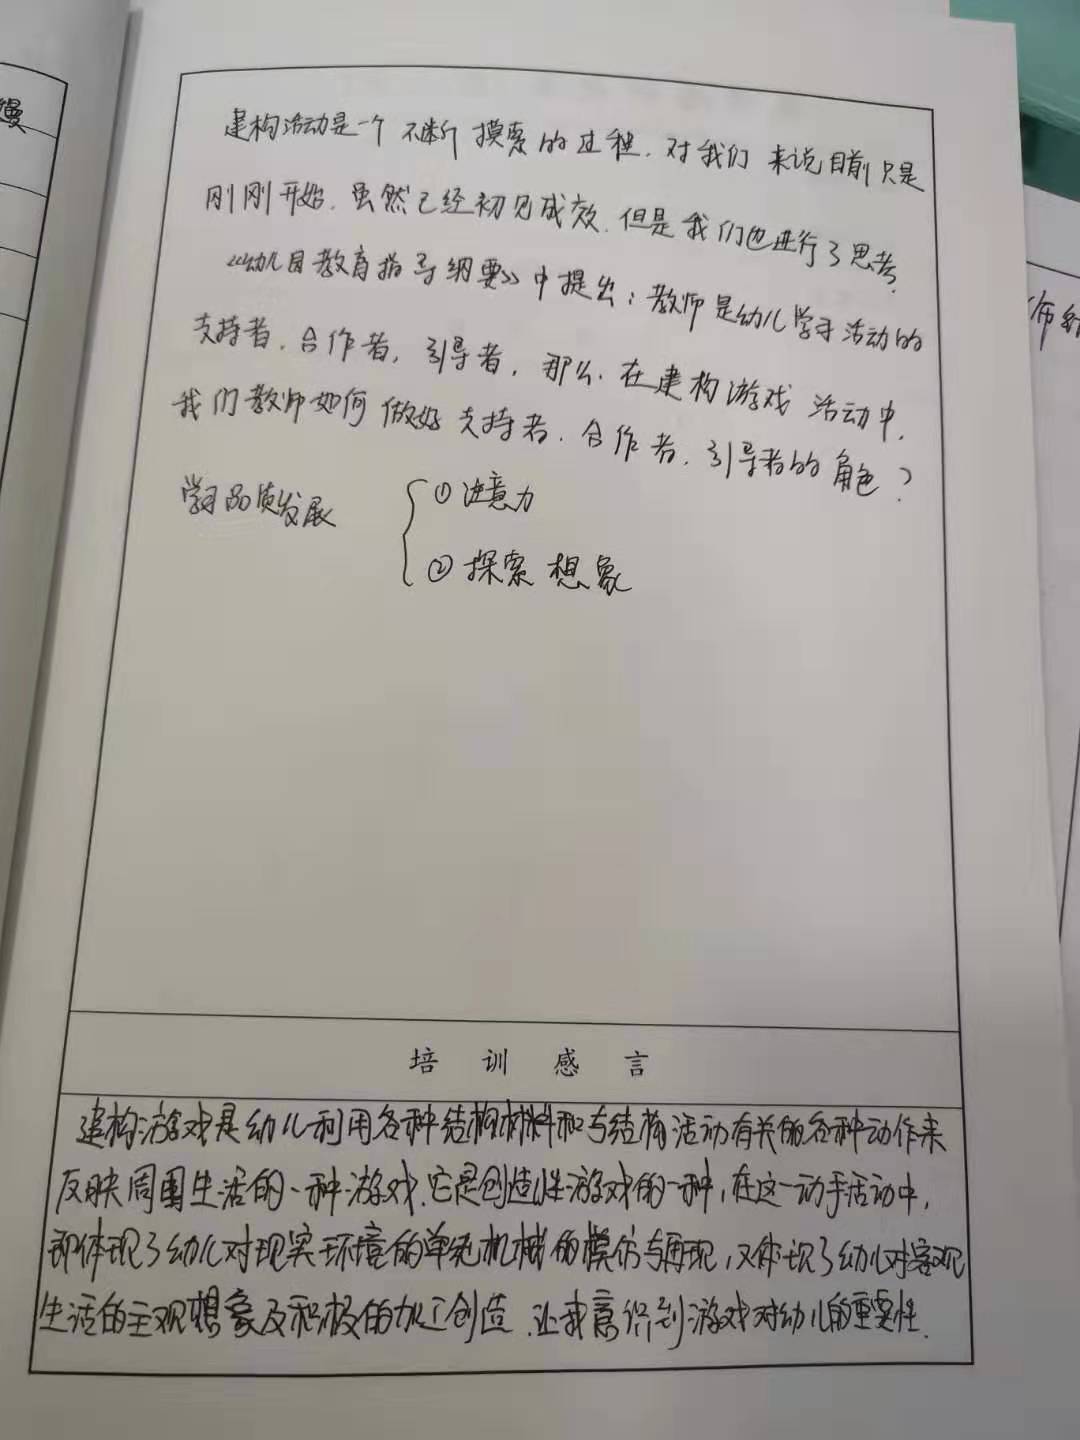 慢
建构活动是一个不断摸索的过程.对我们来说目前只是
刚刚开始.虽然已经初见成效.但是我们也进行了思考.
《幼儿园教育指导纲要》中提出：教师是幼儿学习活动的
支持者.合作者,引导者,那么.在建构游戏活动中,
我们教师如何做好支持者.合作者.引导者的角色?
学习品质发展 ①注意力
②探索想象
培训感言
建构游戏是幼儿利用各种结构材料和与结构活动有关的各种动作来
反映周围生活的一种游戏.它是创造性游戏的一种,在这一动手活动中,
即体现了幼儿对现实环境的单纯机械的模仿与再现,又体现了幼儿对客观
生活的主观想象及积极的加工创造.让我意识到游戏对幼儿的重要性.